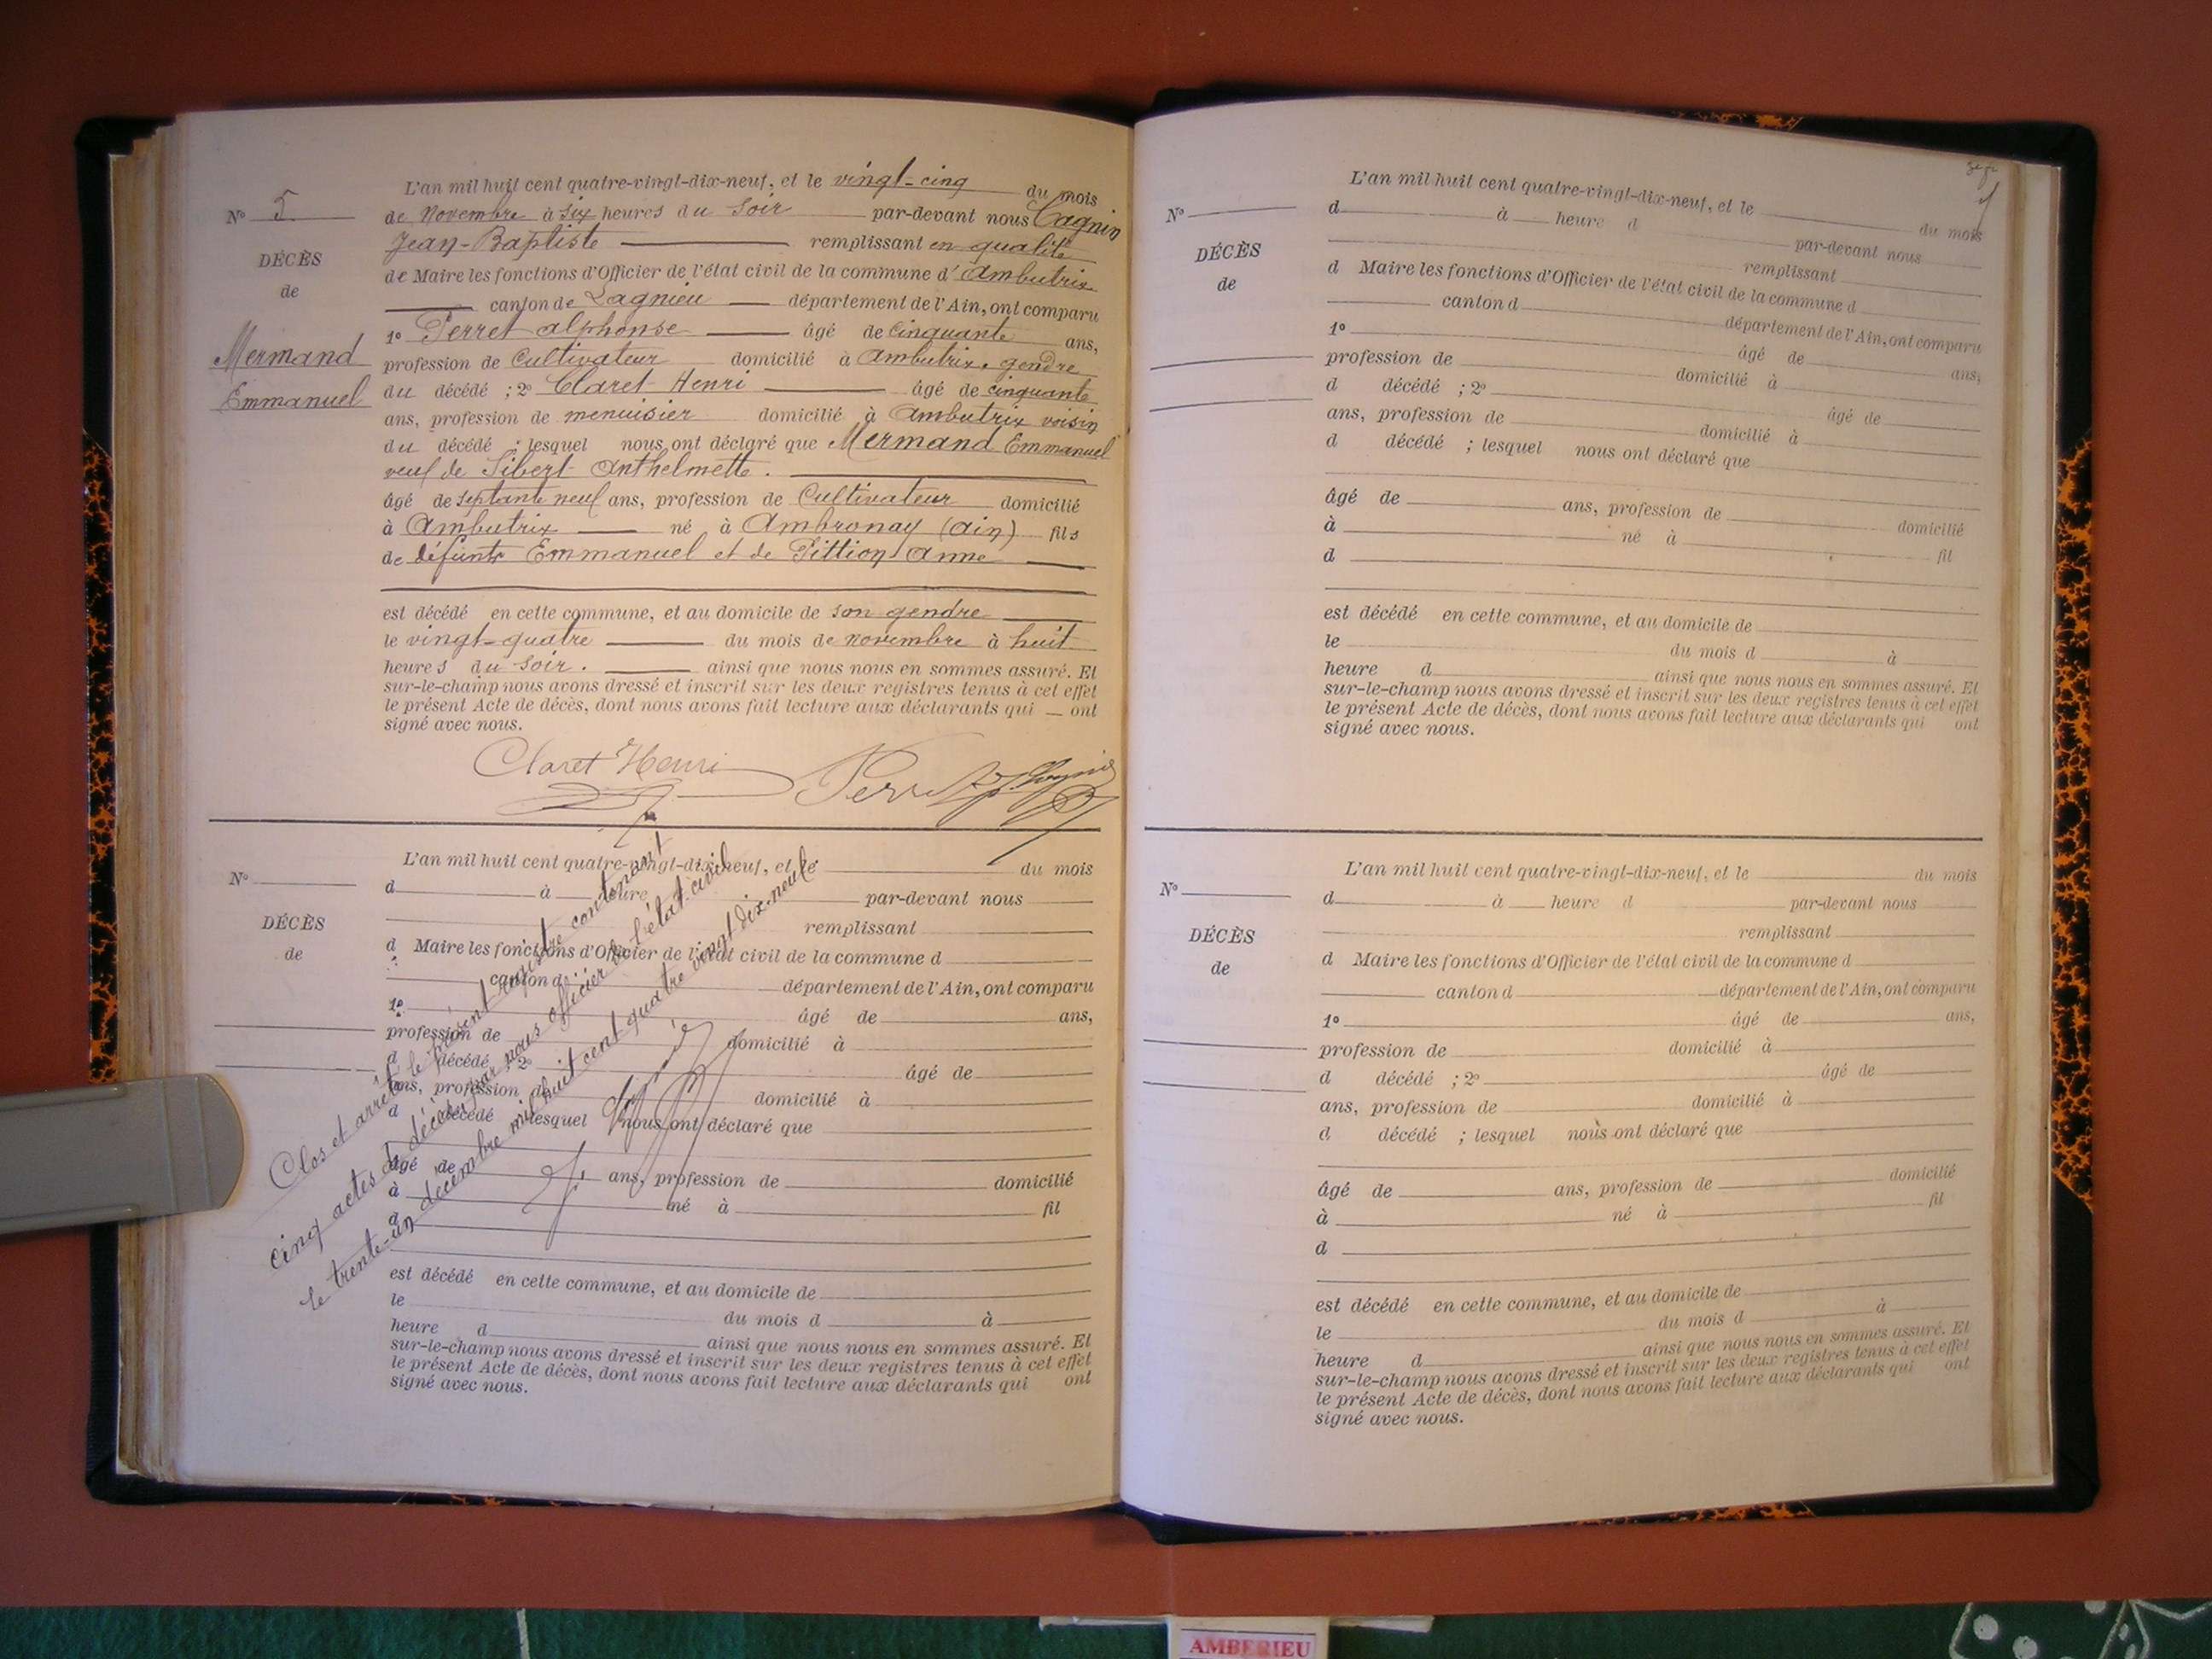 L'an mil huit cent quatre-vingt-dix-neuf, et le vingt-cinq du mois
N° 5
de Novembre à six heures du soir par-devant nous Cagnin
Jean-Baptiste remplissant en qualité
DÉCÈS
de Maire les fonctions d'Officier de l'état civil de la commune d'Ambutrix
de
canton de Lagnieu département de l'Ain, ont comparu
1° Perret alphonse âgé de Cinquante ans,
Mermand
profession de Cultivateur domicilié à Ambutrix, gendre
Emmanuel
du décédé ; 2° Claret Henri âgé de cinquante
ans, profession de menuisier domicilié à Ambutrix voisin
du décédé ; lesquel nous ont déclaré que Mermand Emmanuel
veuf de Sibert Anthelmette.
âgé de septante neuf ans, profession de Cultivateur domicilié
à Ambutrix né à Ambronay (Ain) fils
de défunts Emmanuel et de Pittion Anne
est décédé en cette commune, et au domicile de son gendre
le vingt-quatre du mois de novembre à huit
heures du soir. ainsi que nous nous en sommes assuré. Et
sur-le-champ nous avons dressé et inscrit sur les deux registres tenus à cet effet
le présent Acte de décès, dont nous avons fait lecture aux déclarants qui — ont
signé avec nous.
Claret Henri Perret
L'an mil huit cent quatre-vingt-dix-neuf, et le du mois
N°
d à heure par-devant nous
remplissant
DÉCÈS
d Maire les fonctions d'Officier de l'état civil de la commune d
de
canton d département de l'Ain, ont comparu
1° âgé de ans,
profession de domicilié à
d décédé ; 2° âgé de
ans, profession de domicilié à
d décédé lesquel nous ont déclaré que
âgé de ans, profession de domicilié
à né à fil
d
est décédé en cette commune, et au domicile de
le du mois d à
heure d ainsi que nous nous en sommes assuré. Et
sur-le-champ nous avons dressé et inscrit sur les deux registres tenus à cet effet
le présent Acte de décès, dont nous avons fait lecture aux déclarants qui ont
signé avec nous.
Clos et arrêté le présent registre contenant
cinq actes de décès, par nous officier de l'état civil
le trente-un décembre mil huit cent quatre vingt dix-neuf.
L'an mil huit cent quatre-vingt-dix-neuf, et le du mois
N°
d à heure d par-devant nous
remplissant
DÉCÈS
d Maire les fonctions d'Officier de l'état civil de la commune d
de
canton d département de l'Ain, ont comparu
1° âgé de ans,
profession de domicilié à
d décédé ; 2° âgé de
ans, profession de domicilié à
d décédé ; lesquel nous ont déclaré que
âgé de ans, profession de domicilié
à né à fil
d
est décédé en cette commune, et au domicile de
le du mois d à
heure d ainsi que nous nous en sommes assuré. Et
sur-le-champ nous avons dressé et inscrit sur les deux registres tenus à cet effet
le présent Acte de décès, dont nous avons fait lecture aux déclarants qui ont
signé avec nous.
L'an mil huit cent quatre-vingt-dix-neuf, et le du mois
N°
d à heure d par-devant nous
remplissant
DÉCÈS
d Maire les fonctions d'Officier de l'état civil de la commune d
de
canton d département de l'Ain, ont comparu
1° âgé de ans,
profession de domicilié à
d décédé ; 2° âgé de
ans, profession de domicilié à
d décédé ; lesquel nous ont déclaré que
âgé de ans, profession de domicilié
à né à fil
d
est décédé en cette commune, et au domicile de
le du mois d à
heure d ainsi que nous nous en sommes assuré. Et
sur-le-champ nous avons dressé et inscrit sur les deux registres tenus à cet effet
le présent Acte de décès, dont nous avons fait lecture aux déclarants qui ont
signé avec nous.
AMBERIEU